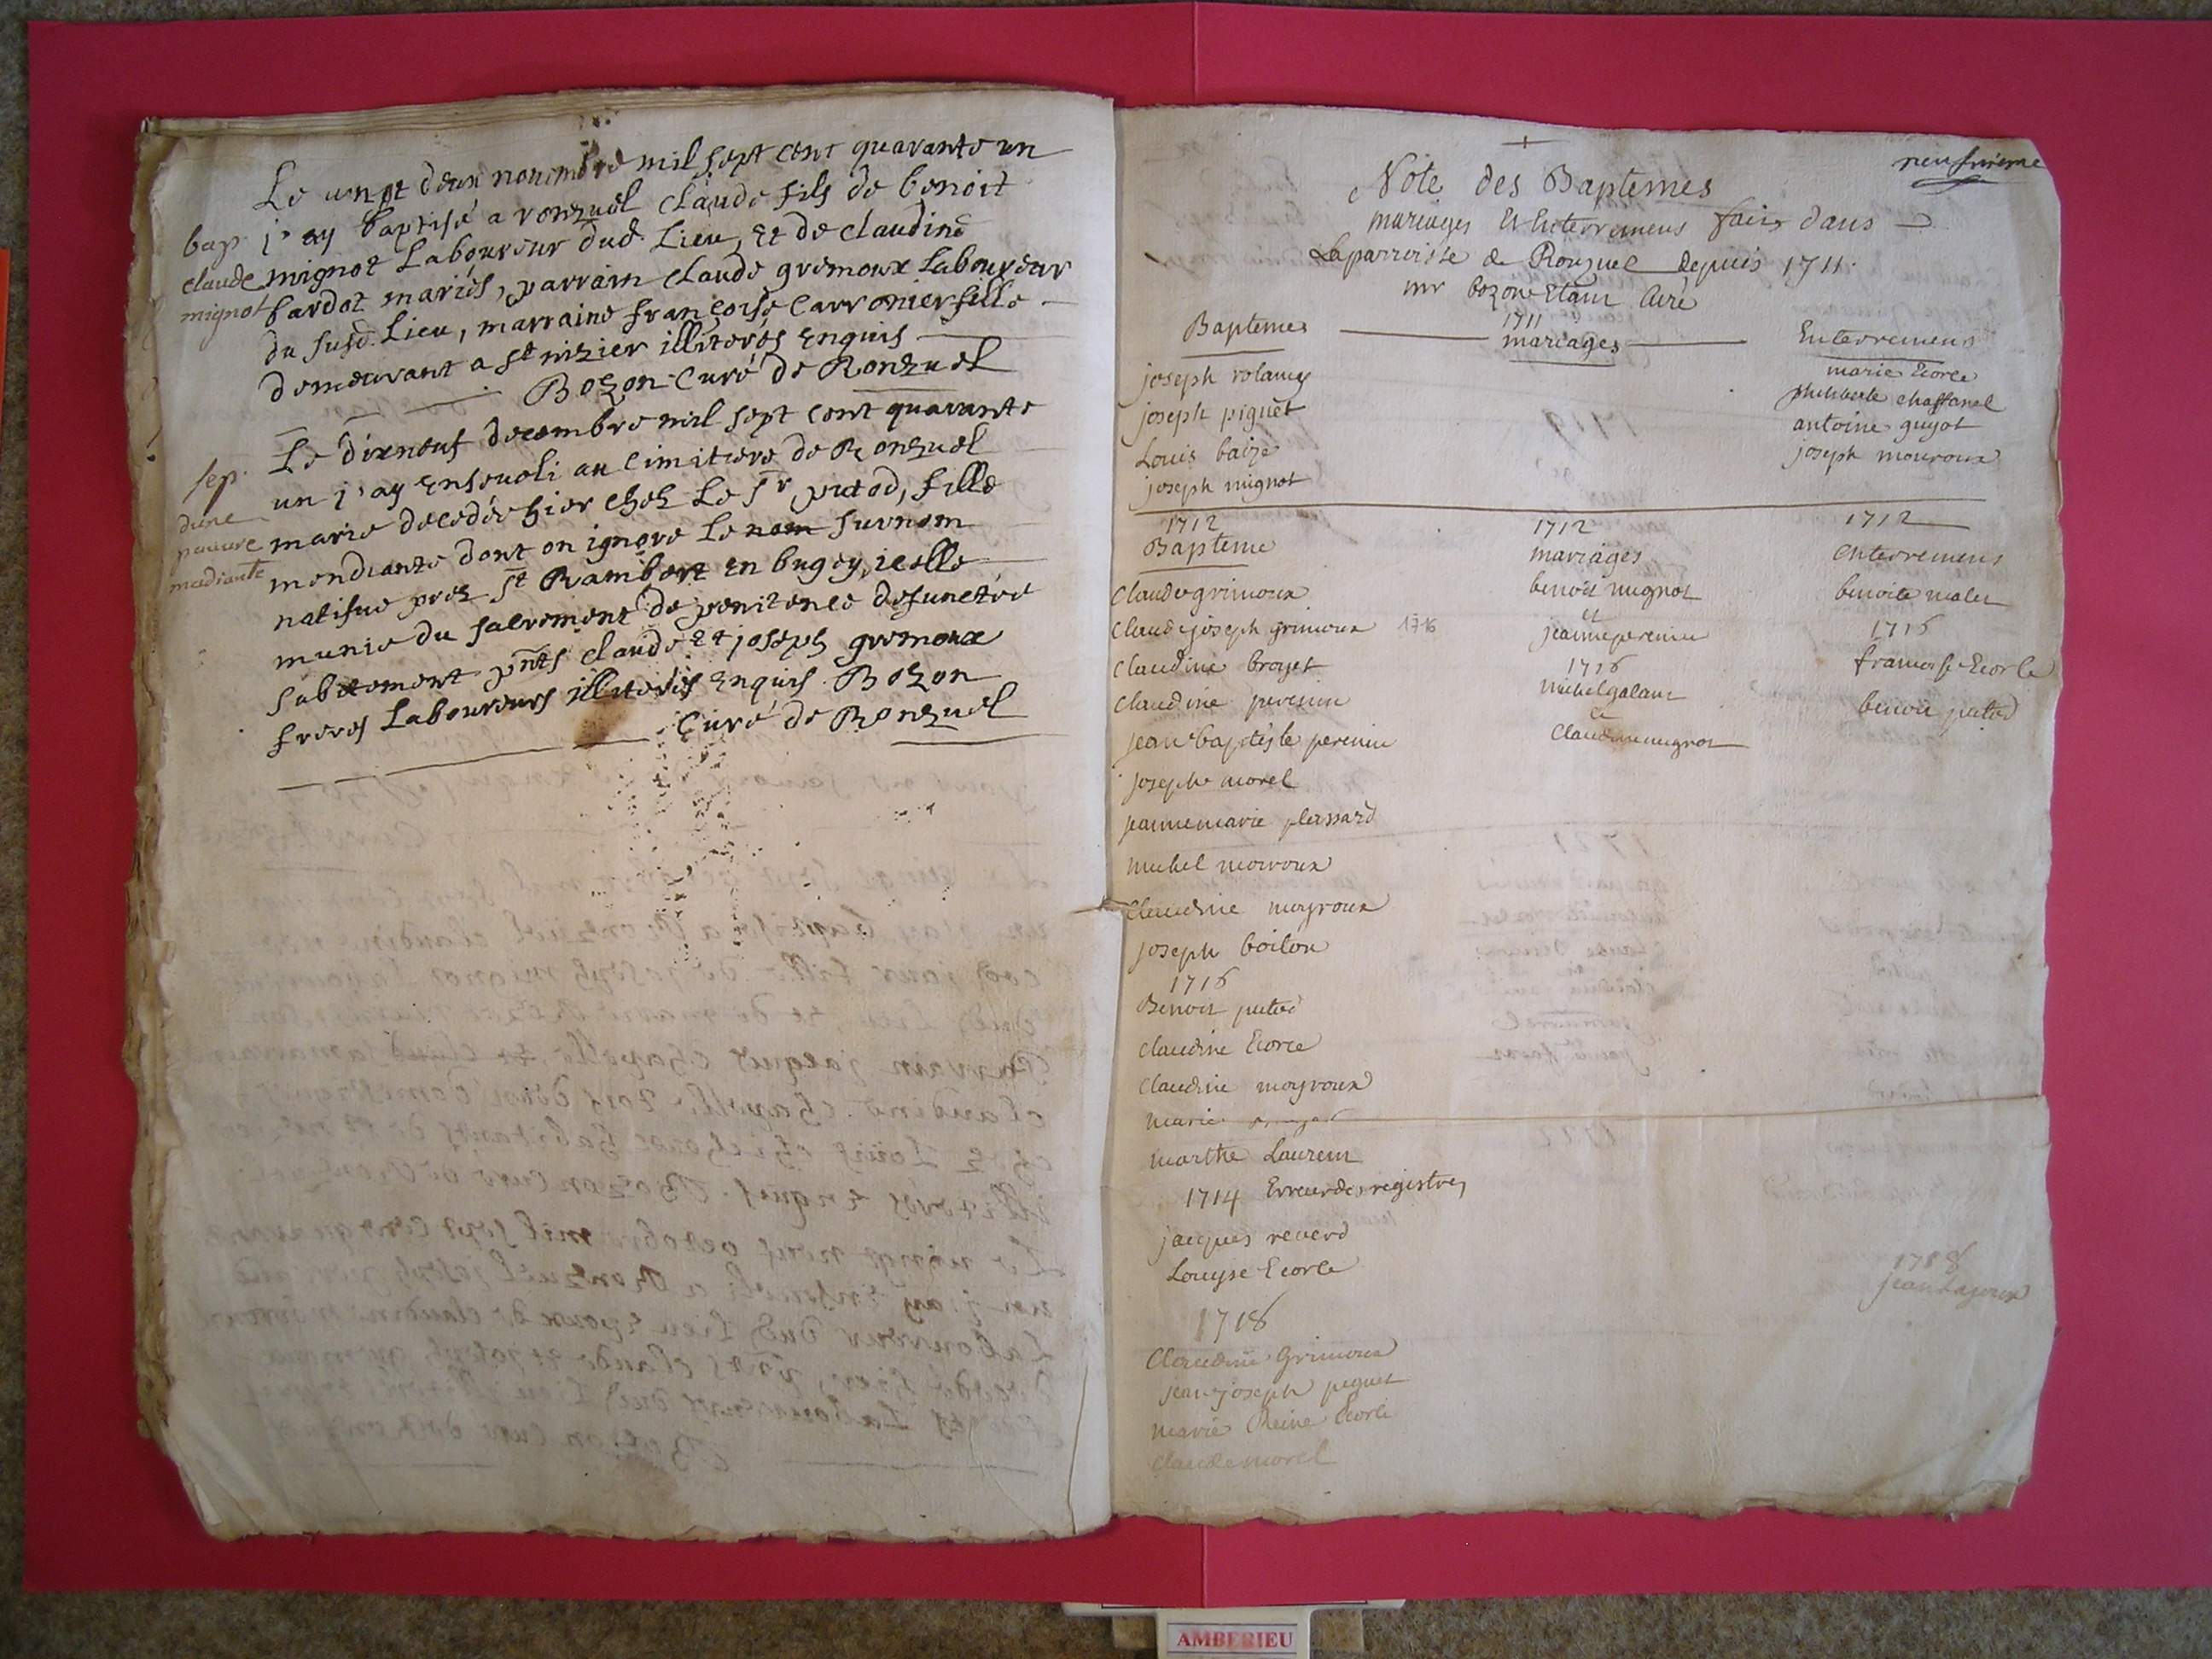 Le vingt deux novembre mil sept cent quarante un
j'ay baptisé a ronzuel claude fils de benoit
mignot Laboureur dud. Lieu, et de claudine
bardot mariés, parrain claude gremoux Laboureur
du susd. Lieu, marraine françoise Carronier fille
demeurant a st nizier illiterés Enquis
Bozon Curé de Ronzuel
bap.
claude
mignot
Le dixneuf decembre mil sept cent quarante
un j'ay Enseveli au Cimitiere de Ronzuel
marie decedée hier chez Le sr putod, fille
mendiante dont on ignore Le nom surnom
natifue prez st Rambert en bugey, icelle
munie du sacrement de penitence defunctée
subitement pnts claude et joseph gremoux
freres Laboureurs illiterés Enquis Bozon
Curé de Ronzuel
sep.
dune
pauure
mediante
neufvieme
Note des Baptemes
mariages Et Enterremens fais dans
Laparroisse de Ronzuel depuis 1711.
mr bozon Etant Curé
Baptemes 1711 mariages Enterremens
joseph rolang
joseph piguet
Louis baize
joseph mignot
marie Ecorce
philiberte chaffanel
antoine guyot
joseph mouroux
1712
Bapteme
claude grimoux
claude joseph grimoux 1716
claudine broyet
claudine perenin
jean baptiste perenin
joseph morel
jeannemarie plassard
michel moiroux
claudine moyroux
joseph boiton
1716
Benoit putod
claudine Ecorce
claudine moyroux
marie
marthe Laurent
1714 Erreur des registres
jacques reverd
Louyse Ecorce
1718
Claudine Grimoux
jean joseph peguet
marie Reine Ecorce
claude morel
1712
mariages
benoit mignot
et
jeanne perenin
1716
michel galand
et
Claudine mignot
1712
enterremens
benoite malet
1716
francoise Ecorce
benoit putod
1718
jean Lajoux
AMBERIEU